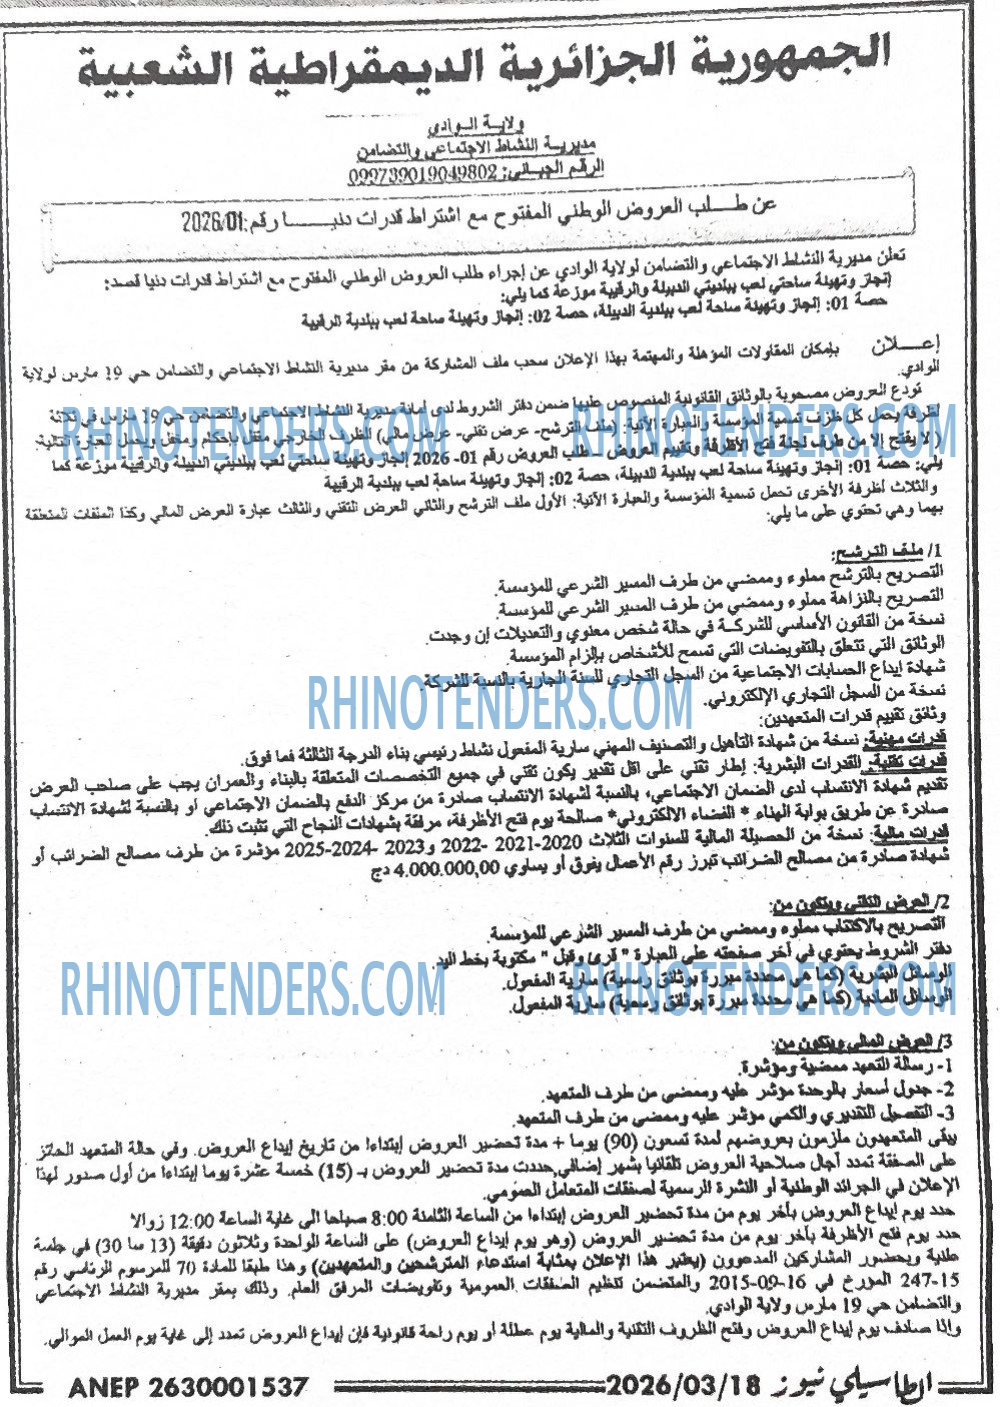 الجمهورية الجزائرية الديمقراطية الشعبية
ولاية الوادي
مديرية النشاط الاجتماعي والتضامن
الرقم الجبائي: 099739019049802
عن طلب العروض الوطني المفتوح مع اشتراط قدرات دنيا رقم: 2026/01
تعلن مديرية النشاط الاجتماعي والتضامن لولاية الوادي عن إجراء طلب العروض الوطني المفتوح مع اشتراط قدرات دنيا قصد:
إنجاز وتهيئة ساحتي لعب ببلديتي الدبيلة والرقيبة موزعة كما يلي:
حصة 01: إنجاز وتهيئة ساحة لعب ببلدية الدبيلة، حصة 02: إنجاز وتهيئة ساحة لعب ببلدية الرقيبة
إعــــلان بإمكان المقاولات المؤهلة والمهتمة بهذا الإعلان سحب ملف المشاركة من مقر مديرية النشاط الاجتماعي والتضامن حي 19 مارس لولاية
الوادي.
تودع العروض مصحوبة بالوثائق القانونية المنصوص عليها ضمن دفتر الشروط لدى أمانة مديرية النشاط الاجتماعي والتضامن حي 19 مارس في ثلاثة
أظرفة يحمل كل ظرف تسمية المؤسسة والعبارة الآتية: (ملف الترشح- عرض تقني- عرض مالي) الظرف الخارجي مقفل بإحكام ومغفل ويحمل العبارة التالية:
(لا يفتح إلا من طرف لجنة فتح الأظرفة وتقييم العروض – طلب العروض رقم 01- 2026 إنجاز وتهيئة ساحتي لعب ببلديتي الدبيلة والرقيبة موزعة كما
يلي: حصة 01: إنجاز وتهيئة ساحة لعب ببلدية الدبيلة، حصة 02: إنجاز وتهيئة ساحة لعب ببلدية الرقيبة
والثلاث أظرفة الأخرى تحمل تسمية المؤسسة والعبارة الآتية: الأول ملف الترشح والثاني العرض التقني والثالث عبارة العرض المالي وكذا الملفات المتعلقة
بهما وهي تحتوي على ما يلي:
1/ ملف الترشح:
التصريح بالترشح مملوء وممضي من طرف المسير الشرعي للمؤسسة.
التصريح بالنزاهة مملوء وممضي من طرف المسير الشرعي للمؤسسة.
نسخة من القانون الأساسي للشركة في حالة شخص معنوي والتعديلات إن وجدت.
الوثائق التي تتعلق بالتفويضات التي تسمح للأشخاص بإلزام المؤسسة.
شهادة إيداع الحسابات الاجتماعية من السجل التجاري للسنة الجارية بالنسبة للشركة.
نسخة من السجل التجاري الإلكتروني.
وثائق تقييم قدرات المتعهدين:
قدرات مهنية: نسخة من شهادة التأهيل والتصنيف المهني سارية المفعول نشاط رئيسي بناء الدرجة الثالثة فما فوق.
قدرات تقنية: القدرات البشرية: إطار تقني على اقل تقدير يكون تقني في جميع التخصصات المتعلقة بالبناء والعمران يجب على صاحب العرض
تقديم شهادة الانتساب لدى الضمان الاجتماعي، بالنسبة لشهادة الانتساب صادرة من مركز الدفع بالضمان الاجتماعي او بالنسبة لشهادة الانتساب
صادرة عن طريق بوابة الهناء * الفضاء الالكتروني* صالحة يوم فتح الأظرفة، مرفقة بشهادات النجاح التي تثبت ذلك.
قدرات مالية: نسخة من الحصيلة المالية للسنوات الثلاث 2020-2021 -2022 و2023 -2024-2025 مؤشرة من طرف مصالح الضرائب أو
شهادة صادرة من مصالح الضرائب تبرز رقم الأعمال يفوق أو يساوي 4.000.000,00 دج
2/ العرض التقني ويتكون من:
التصريح بالاكتتاب مملوء وممضي من طرف المسير الشرعي للمؤسسة.
دفتر الشروط يحتوي في آخر صفحته على العبارة " قرئ وقبل " مكتوبة بخط اليد.
الوسائل البشرية (كما هي محددة مبررة بوثائق رسمية) سارية المفعول.
الوسائل المادية (كما هي محددة مبررة بوثائق رسمية) سارية المفعول.
3/ العرض المالي ويتكون من:
1- رسالة التعهد ممضية ومؤشرة.
2- جدول أسعار بالوحدة مؤشر عليه وممضي من طرف المتعهد.
3- التفصيل التقديري والكمي مؤشر عليه وممضي من طرف المتعهد.
يبقى المتعهدون ملزمون بعروضهم لمدة تسعون (90) يوما + مدة تحضير العروض إبتداءا من تاريخ إيداع العروض. وفي حالة المتعهد الحائز
على الصفقة تمدد آجال صلاحية العروض تلقائيا بشهر إضافي,حددت مدة تحضير العروض بـ (15) خمسة عشرة يوما إبتداءا من أول صدور لهذا
الإعلان في الجرائد الوطنية أو النشرة الرسمية لصفقات المتعامل العمومي.
حدد يوم إيداع العروض بآخر يوم من مدة تحضير العروض إبتداءا من الساعة الثامنة 8:00 صباحا الى غاية الساعة 12:00 زوالا
حدد يوم فتح الأظرفة بآخر يوم من مدة تحضير العروض (وهو يوم إيداع العروض) على الساعة الواحدة وثلاثون دقيقة (13 سا 30) في جلسة
علنية وبحضور المشاركين المدعوون (يعتبر هذا الإعلان بمثابة استدعاء المترشحين والمتعهدين) وهذا طبقا للمادة 70 للمرسوم الرئاسي رقم
15-247 المؤرخ في 16-09-2015 والمتضمن تنظيم الصفقات العمومية وتفويضات المرفق العام. وذلك بمقر مديرية النشاط الاجتماعي
والتضامن حي 19 مارس ولاية الوادي.
وإذا صادف يوم إيداع العروض وفتح الظروف التقنية والمالية يوم عطلة أو يوم راحة قانونية فإن إيداع العروض تمدد إلى غاية يوم العمل الموالي.
الطاسيلي نيوز 2026/03/18
ANEP 2630001537
RHINOTENDERS.COM
RHINOTENDERS.COM
RHINOTENDERS.COM
RHINOTENDERS.COM
RHINOTENDERS.COM